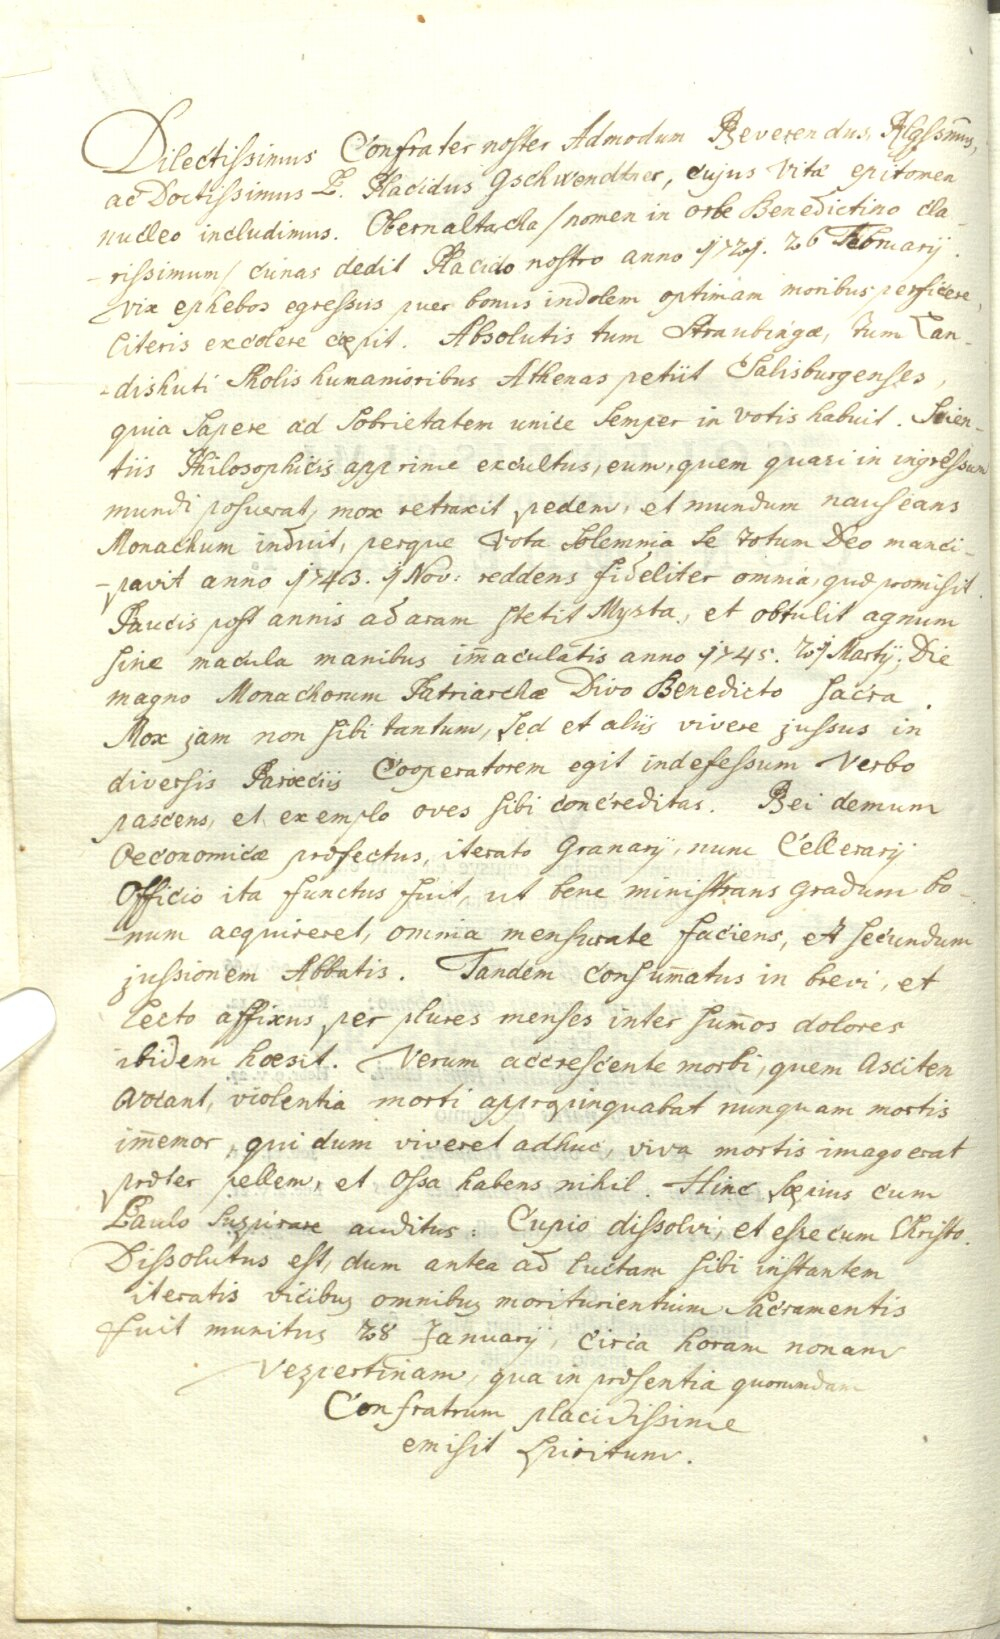 Dilectissimus Confrater noster Admodum Reverendus, Rlgssm̃us,
ac Doctissimus P. Placidus Gschwendtner, cujus Vitæ epitomen
nucleo includimus. Obernaltacha / nomen in orbe Benedictino cla-
-rissimum / cunas dedit Placido nostro anno 1721. 26 Februarij.
Vix ephebos egressus puer bonus indolem optimam moribus perficere,
literis excolere cœpit. Absolutis tum Straubingæ, tum Lan-
-dishuti Scholis humanioribus Athenas petiit Salisburgenses,
quia sapere ad sobrietatem unice semper in votis habuit. Scien-
tiis Philosophicis apprime excultus, eum, quem quasi in ingressum
mundi posuerat, mox retraxit pedem, et mundum nauseans
Monachum induit, perque Vota solemnia se totum Deo manci-
-pavit anno 1743. 1 Nov: reddens fideliter omnia, quæ promisit.
Paucis post annis ad aram stetit Mysta, et obtulit agnum
sine macula manibus im̃aculatis anno 1745. 21 Martij, Die
magno Monachorum Patriarchæ Divo Benedicto sacra.
Mox jam non sibi tantum, sed et aliis vivere jussus in
diversis Parœciis Cooperatorem egit indefessum Verbo
pascens, et exemplo oves sibi concreditas. Rei demum
Oeconomicæ præfectus, iterato Granarij, nunc Cellerarij
Officio ita functus fuit, ut bene ministrans gradum bo-
-num acquireret, omnia mensurate faciens, et secundum
jussionem Abbatis. Tandem consum̃atus in brevi, et
lecto affixus per plures menses inter sum̃os dolores
ibidem hæsit. Verum accrescente morbi, quem Asciten
vocant, violentia morti appropinquabat nunquam mortis
im̃emor, qui dum viveret adhuc, viva mortis imago erat
præter pellem, et ossa habens nihil. Hinc sæpius cum
Paulo suspirare auditus: Cupio dissolvi, et esse cum Christo.
Dissolutus est, dum antea ad luctam sibi instantem
iteratis vicibus omnibus moriturientium Sacramentis
fuit munitus 28 Januarij, circa horam nonam
Vespertinam, qua in præsentia quorundam
Confratrum placidissime
emisit spiritum.